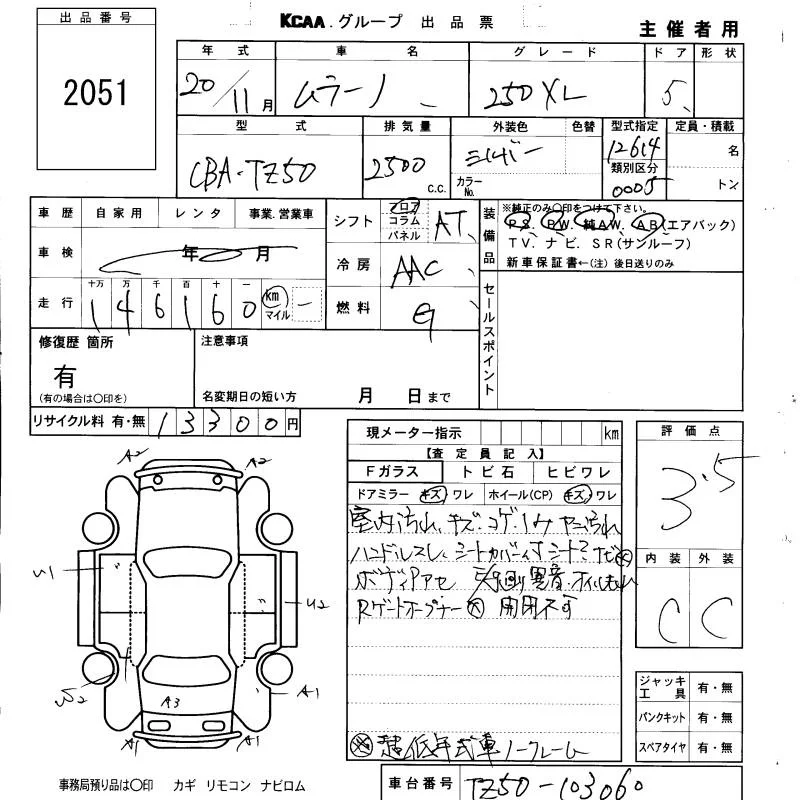 出品番号
KCAA.グループ 出品票
主催者用
2051
年式 車名 グレード ドア 形状
20/11月 ムラーノ 250XL 5
型式 排気量 外装色 色替 型式指定 定員・積載
CBA-TZ50 2500 c.c. シルバー カラーNo. 12614 名
類別区分 0005 トン
車歴 自家用 レンタ 事業.営業車
シフト フロア コラム パネル AT
装備品 ※純正のみ〇印をつけて下さい。
PS. PW. 純AW. AB(エアバック)
TV. ナビ. SR(サンルーフ)
新車保証書←(注) 後日送りのみ
車検 年 月
冷房 AAC
走行 十万 万 千 百 十 一
146160 km マイル
燃料 G
セールスポイント
修復歴 箇所 注意事項
有
(有の場合は〇印を) 名変期日の短い方 月 日まで
リサイクル料 有・無 13300円
現メーター指示 km
評価点
【査定員記入】
Fガラス トビ石 ヒビワレ
3.5
ドアミラー キズ ワレ ホイール(CP) キズ ワレ
室内汚れ、キズ・コゲ・
ハンドルスレ、シートカバー
内装 外装
C C
ボディアセ 異音
Rゲートオープナー 開閉不可
A2 A2
U1
U2
A1
A3
A1 A1
ジャッキ工具 有・無
パンクキット 有・無
スペアタイヤ 有・無
超低年式車ノークレーム
事務局預り品は〇印 カギ リモコン ナビロム
車台番号 TZ50-103060